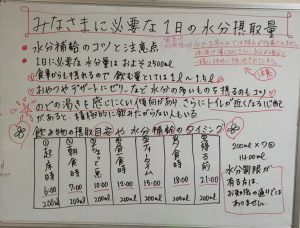 みなさまに必要な1日の水分摂取量
・水分補給のコツと注意点
・1日に必要な水分量はおよそ2500ml
食事からも摂れるので飲む量としては1L~1.5L
・おやつやデザートにゼリーなど水分の多いものを摂るのもコツ
・のどの渇きを感じにくい傾向があり、さらにトイレが近くなるし
があると、積極的に飲みたがらない人もいる
飲み物の摂取目安や水分補給のタイミング
①起床時 6:00 200ml
②朝食時 7:00 200ml
③ 10:00 200ml
④昼食時 12:00 200ml
⑤ティータイム 15:00 200ml
⑥夕食時 18:00 200ml
⑦寝る前 21:00 200ml
200ml×7回
1400ml
水分制限が
有る方は、
の通りでは
ありません。
注意